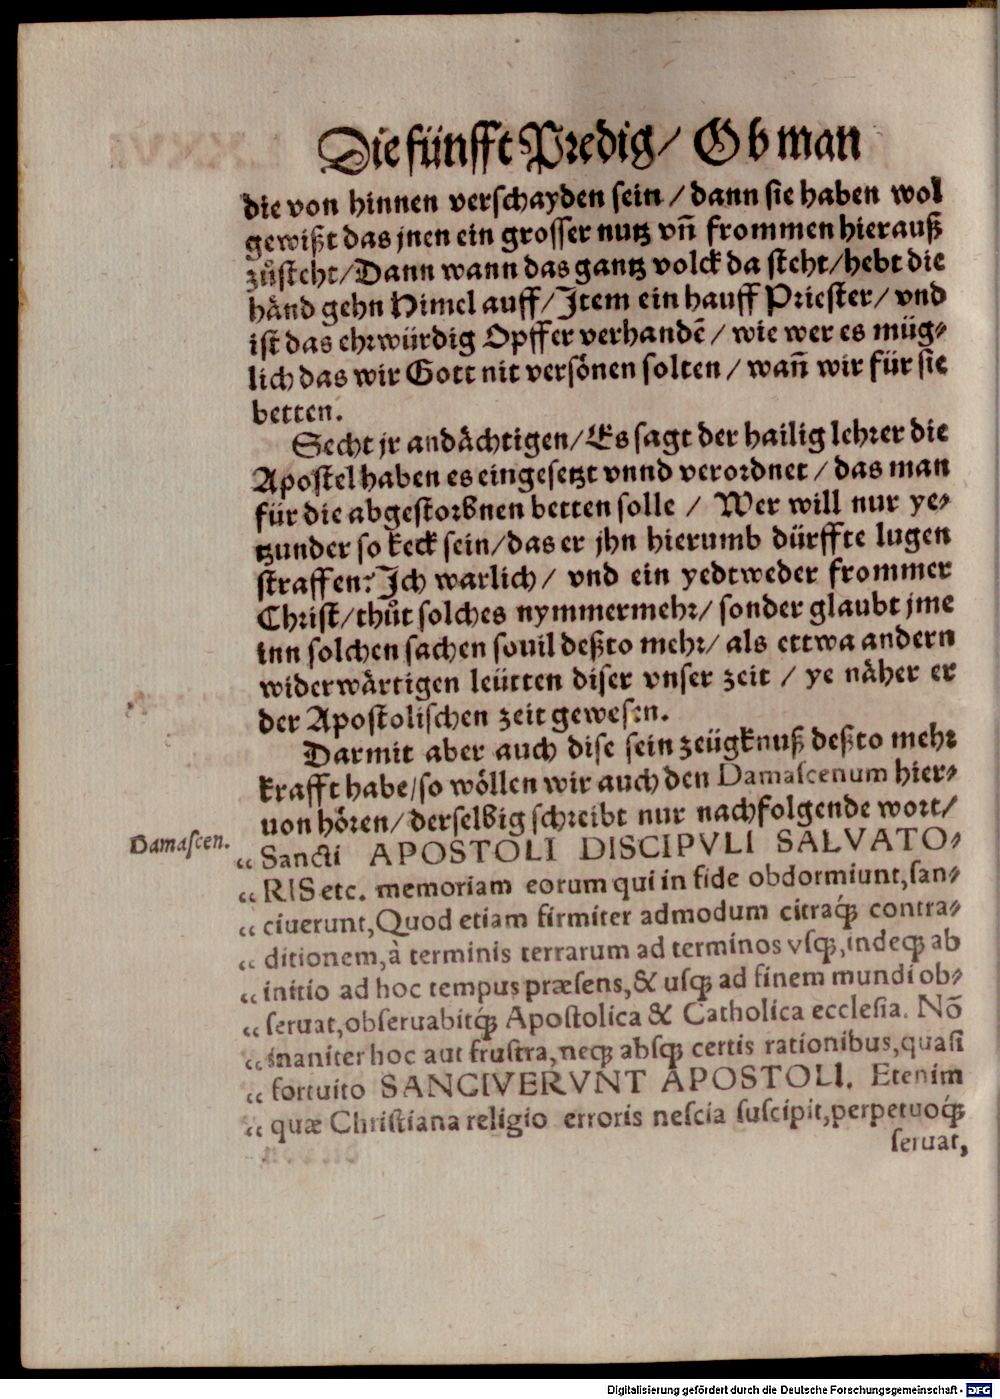 Die fünfft Predig/ Ob man
die von hinnen verschayden sein / dann sie haben wol
gewißt das jnen ein grosser nutz vñ frommen hierauß
zůsteht/Dann wann das gantz volck da steht/hebt die
händ gehn Himel auff/Item ein hauff Priester/ vnd
ist das ehrwürdig Opffer verhandē / wie wer es müg⸗
lich das wir Gott nit versönen solten / wañ wir für sie
betten.
Secht jr andächtigen/Es sagt der hailig lehrer die
Apostel haben es eingesetzt vnnd verordnet / das man
für die abgestorbnen betten solle / Wer will nur ye⸗
tzunder so keck sein/das er jhn hierumb dürffte lugen
straffen? Ich warlich/ vnd ein yedtweder frommer
Christ/thůt solches nymmermehr/ sonder glaubt jme
inn solchen sachen souil deßto mehr/ als ettwa andern
widerwärtigen leütten diser vnser zeit / ye näher er
der Apostolischen zeit gewesen.
Darmit aber auch dise sein zeügknuß deßto mehr
krafft habe/so wöllen wir auch den Damascenum hier⸗
uon hören/ derselbig schreibt nur nachfolgende wort/
Damascen.
„ Sancti APOSTOLI DISCIPVLI SALVATO⸗
„ RIS etc. memoriam eorum qui in fide obdormiunt,san⸗
„ ciuerunt,Quod etiam firmiter admodum citraq́ꝫ contra⸗
„ ditionem,à terminis terrarum ad terminos vsqꝫ,indeqꝫ ab
„ initio ad hoc tempus præsens,& usqꝫ ad finem mundi ob⸗
„ seruat,obseruabitq́ꝫ Apostolica & Catholica ecclesia. Nō
„ inaniter hoc aut frustra,neqꝫ absqꝫ certis rationibus,quasi
„ fortuito SANCIVERVNT APOSTOLI. Etenim
„ quæ Christiana religio erroris nescia suscipit,perpetuoq́ꝫ
seruat,
Digitalisierung gefördert durch die Deutsche Forschungsgemeinschaft - DFG